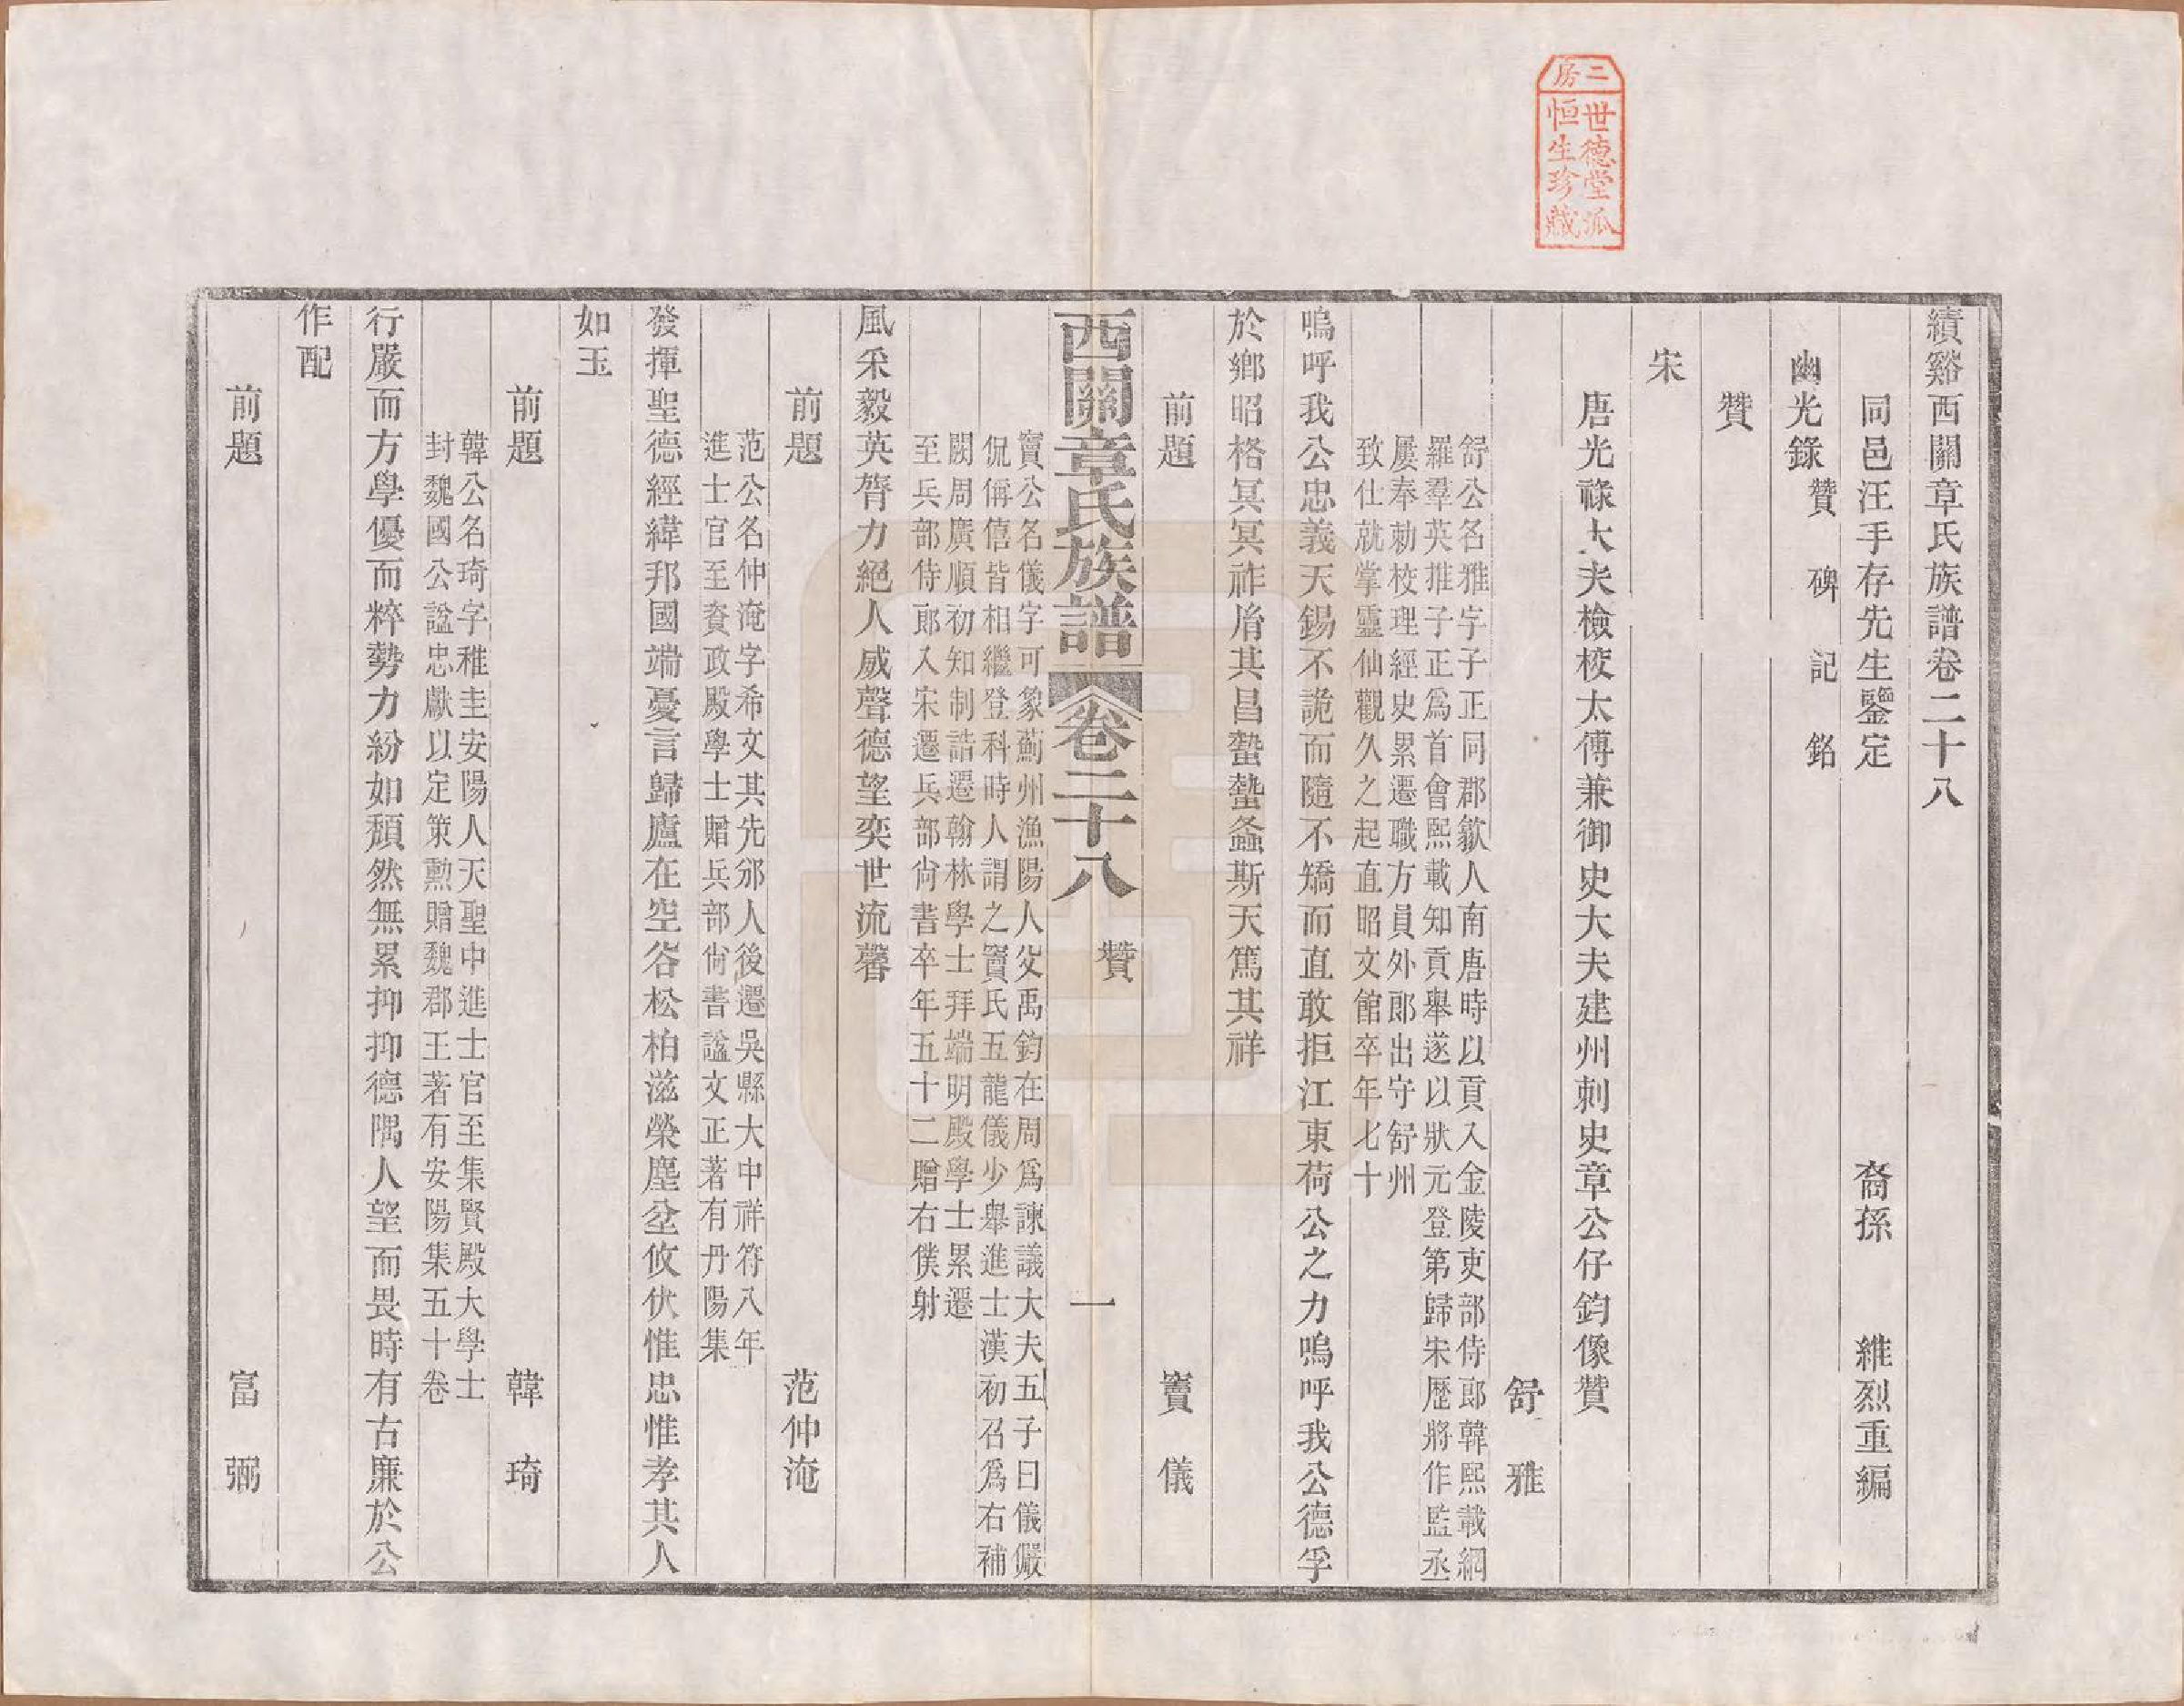 二房
世德堂派
恒生珍藏
績谿西關章氏族譜卷二十八
同邑汪手存先生鑒定 裔孫 維烈重編
幽光錄 贊 碑 記 銘
贊
宋
唐光祿大夫檢校太傅兼御史大夫建州刺史章公仔鈞像贊
舒 雅
舒公名雅字子正同郡歙人南唐時以貢入金陵吏部侍郎韓熙載網
羅羣英推子正爲首會熙載知貢舉遂以狀元登第歸宋歷將作監丞
屢奉勅校理經史累遷職方員外郎出守舒州
致仕就掌靈仙觀久之起直昭文館卒年七十
嗚呼我公忠義天錫不詭而隨不矯而直敢拒江東荷公之力嗚呼我公德孚
於鄉昭格冥冥祚胤其昌蟄蟄螽斯天篤其祥
前題 竇 儀
西關章氏族譜 卷二十八 贊 一
竇公名儀字可象薊州漁陽人父禹鈞在周爲諫議大夫五子曰儀儼
侃偁僖皆相繼登科時人謂之竇氏五龍儀少舉進士漢初召爲右補
闕周廣順初知制誥遷翰林學士拜端明殿學士累遷
至兵部侍郎入宋遷兵部尙書卒年五十二贈右僕射
風采毅英膂力絕人威聲德望奕世流馨
前題 范仲淹
范公名仲淹字希文其先邠人後遷吳縣大中祥符八年
進士官至資政殿學士贈兵部尙書諡文正著有丹陽集
發揮聖德經緯邦國端憂言歸廬在空谷松柏滋榮塵坌攸伏惟忠惟孝其人
如玉
前題 韓 琦
韓公名琦字稚圭安陽人天聖中進士官至集賢殿大學士
封魏國公諡忠獻以定策勳贈魏郡王著有安陽集五十卷
行嚴而方學優而粹勢力紛如頹然無累抑抑德隅人望而畏時有古廉於公
作配
前題 富 弼